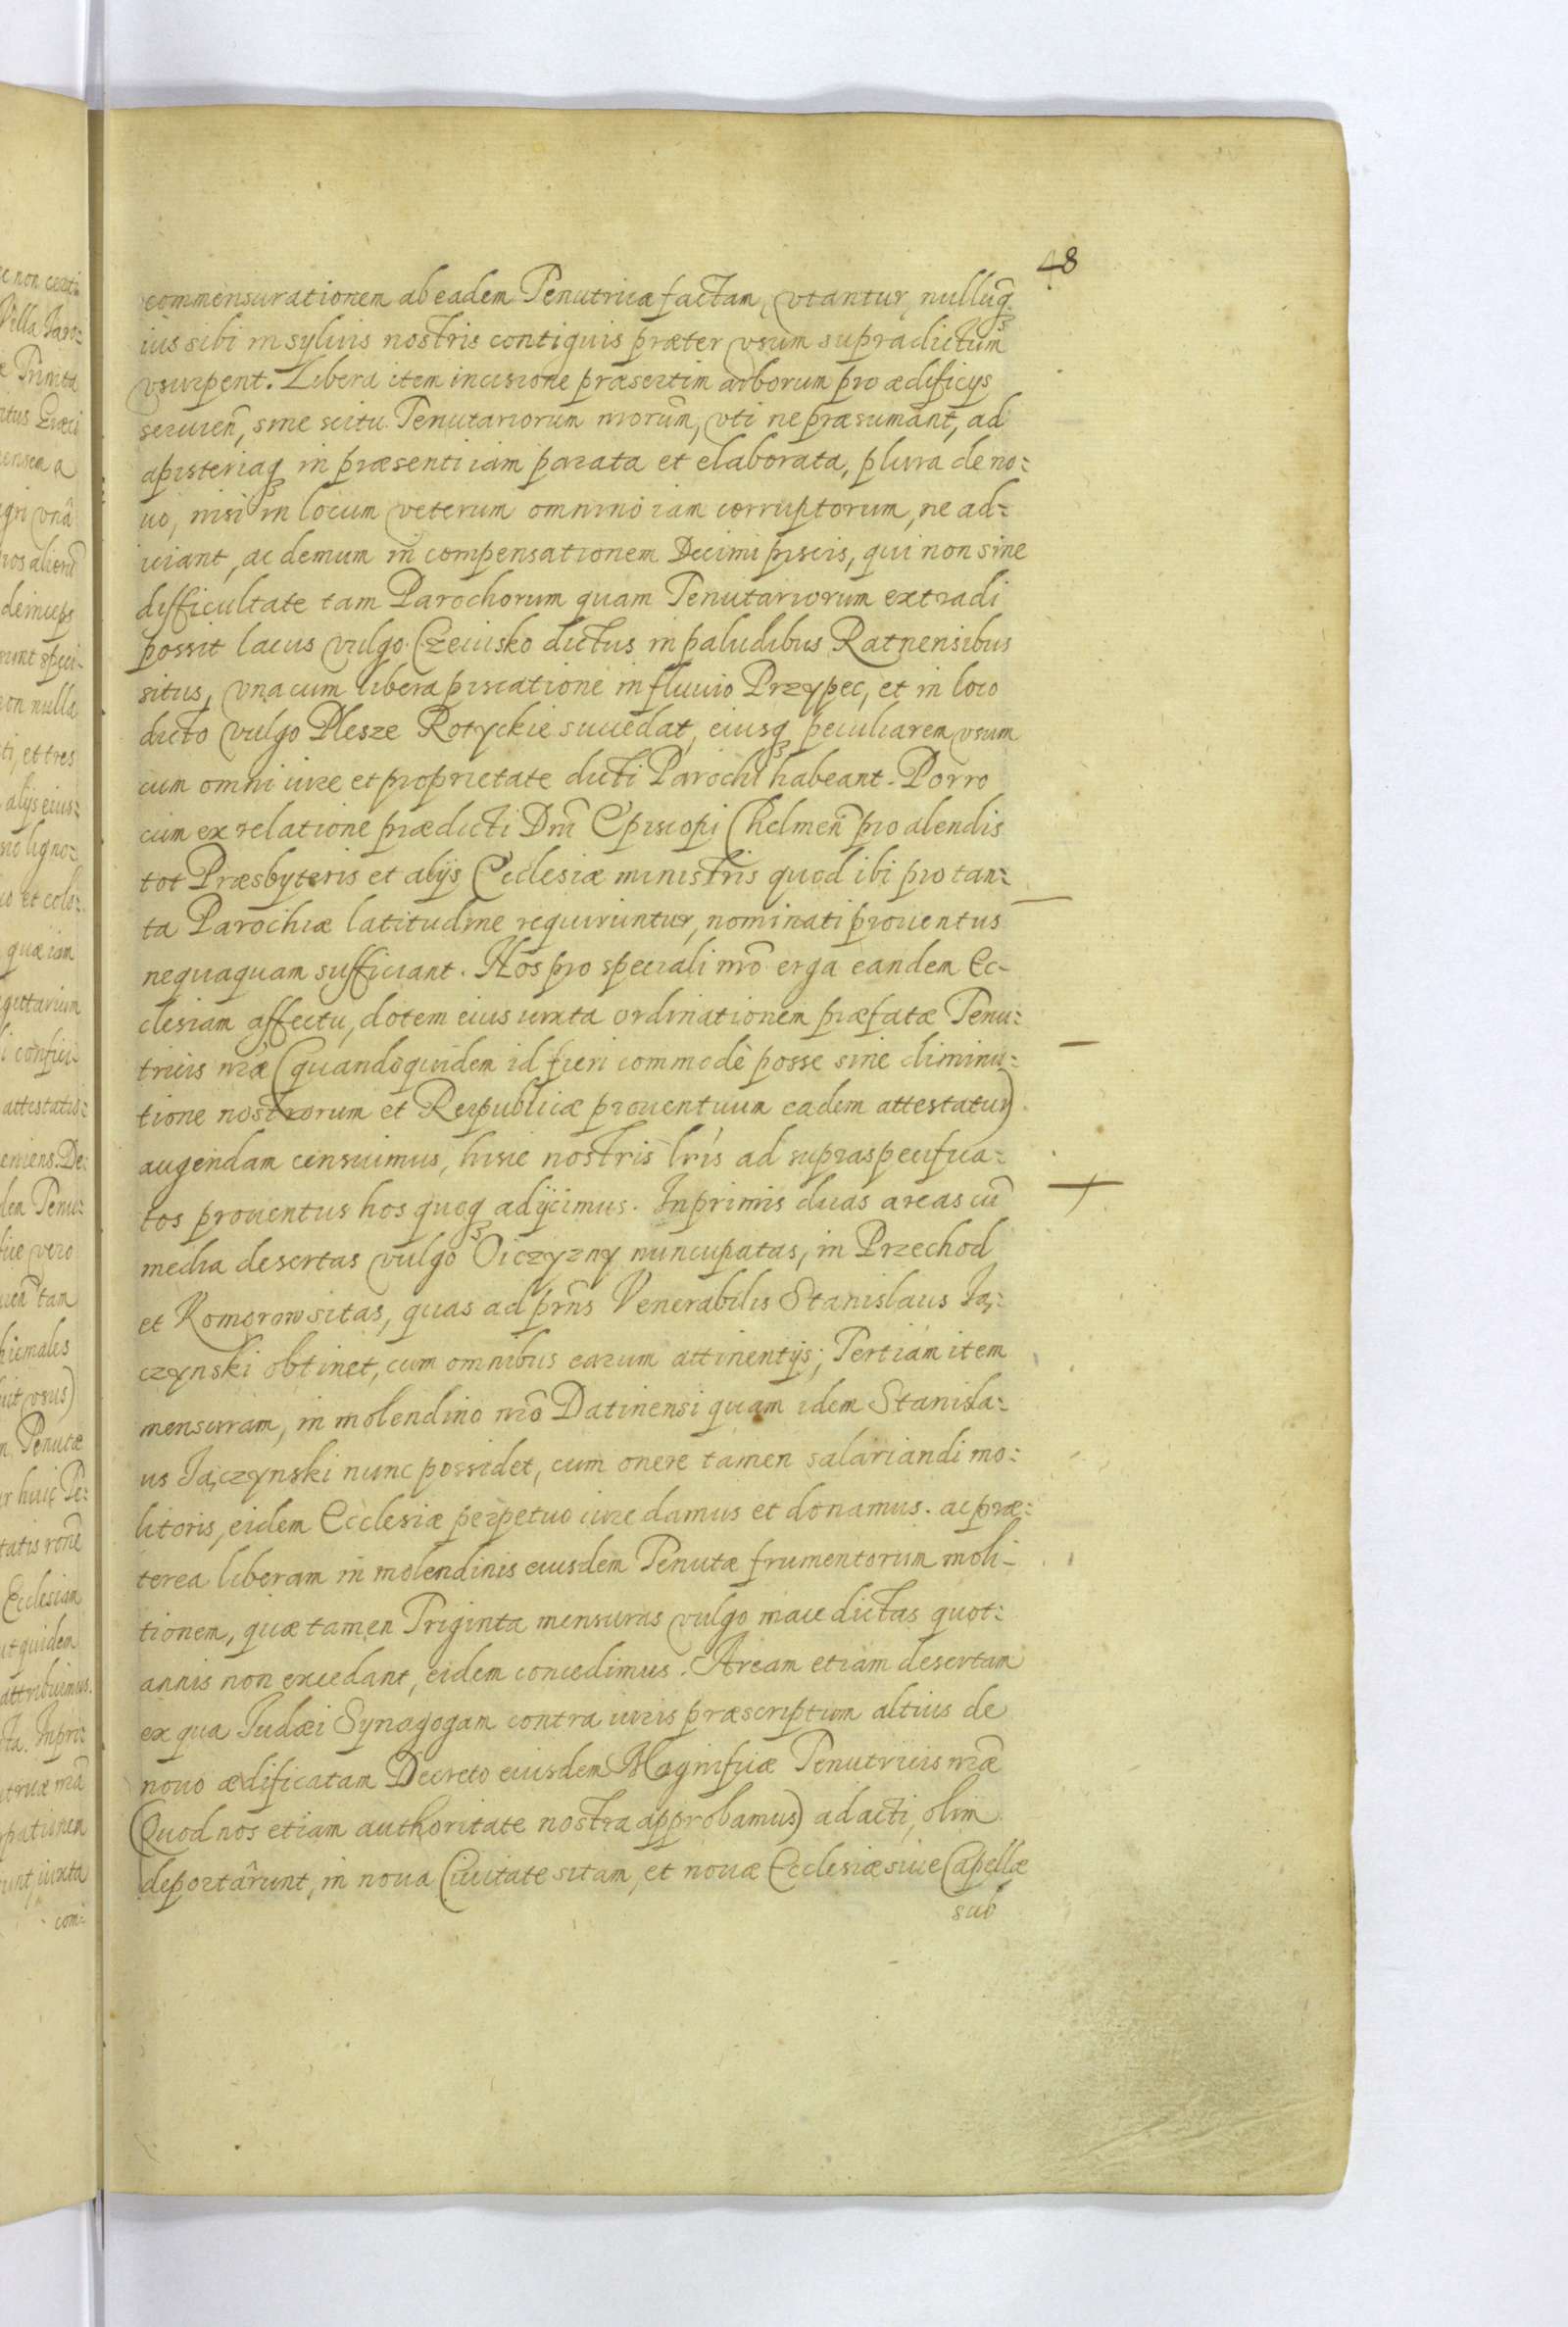 48
commensurationem ab eadem Tenutrice factam, vtantur, nullumq́ꝫ
ius sibi in syluis nostris contiguis præter vsum supradictum
vsurpent. Libera item incisione præsertim arborum pro ædificijs
seruien̄, sine scitu Tenutariorum nr̄orum, vti ne præsumant, ad
apisteriaqꝫ in præsenti iam parata et elaborata, plura de no:
uo, nisi in locum veterum omnino iam corruptorum, ne ad:
iiciant, ac demum in compensationem Decimi piscis, qui non sine
difficultate tam Parochorum quam Tenutariorum extradi
possit lacus vulgo Czeiusko dictus in paludibus Ratnensibus
situs, vna cum libera piscatione in fluuio Przypec, et in loco
dicto vulgo Plesze Rotyckie succedat, eiusqꝫ peculiarem vsum
cum omni iure et proprietate dicti Parochi habeant. Porro
cum ex relatione prædicti Dn̄i Episcopi Chelmen̄ pro alendis
tot Præsbyteris et alijs Ecclesiæ ministris quod ibi pro tan:
ta Parochiæ latitudine requiruntur, nominati prouentus
nequaquam sufficiant. Nos pro speciali nr̄o erga eandem Ec-
clesiam affectu, dotem eius iuxta ordinationem præfatæ Tenu:
tricis nr̄æ (quandoquidem id fieri commodè posse sine diminu:
tione nostrorum et Reipublicæ prouentuum eadem attestatur)
augendam censuimus, hisce nostris lr̄is ad supraspecifica:
tos prouentus hos quoqꝫ adijcimus. Inprimis duas areas cū
media desertas vulgo Oiczyzny nuncupatas, in Przechod
et Komorow sitas, quas ad prn̄s Venerabilis Stanislaus Ją:
czynski obtinet, cum omnibus earum attinentijs; Tertiam item
mensuram, in molendino nr̄o Datinensi quam idem Stanisla:
us Jączynski nunc possidet, cum onere tamen salariandi mo:
litoris, eidem Ecclesiæ perpetuo iure damus et donamus. ac præ:
terea liberam in molendinis eiusdem Tenutæ frumentorum moli-
tionem, quæ tamen Triginta mensuras vulgo mace dictas quot:
annis non excedant, eidem concedimus. Aream etiam desertam
ex qua Judæi Synagogam contra iuris præscriptum altius de
nouo ædificatam Decreto eiusdem Magnificæ Tenutricis nr̄æ
(Quod nos etiam authoritate nostra approbamus) adacti, olim
deportârunt, in noua Ciuitate sitam, et nouæ Ecclesiæ siue Capellæ
sub